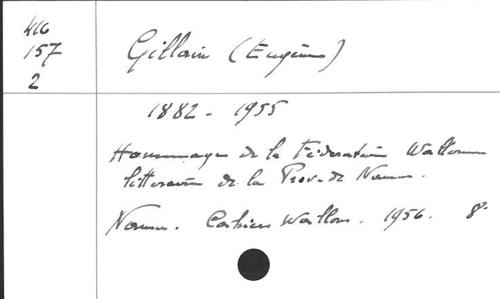 416
157
2
Gillain (Eugène)
1882 - 1955
Hommages de la Fédération Wallonne
littéraire de la Prov. de Namur.
Namur. Cahiers Wallons. 1956. 8°